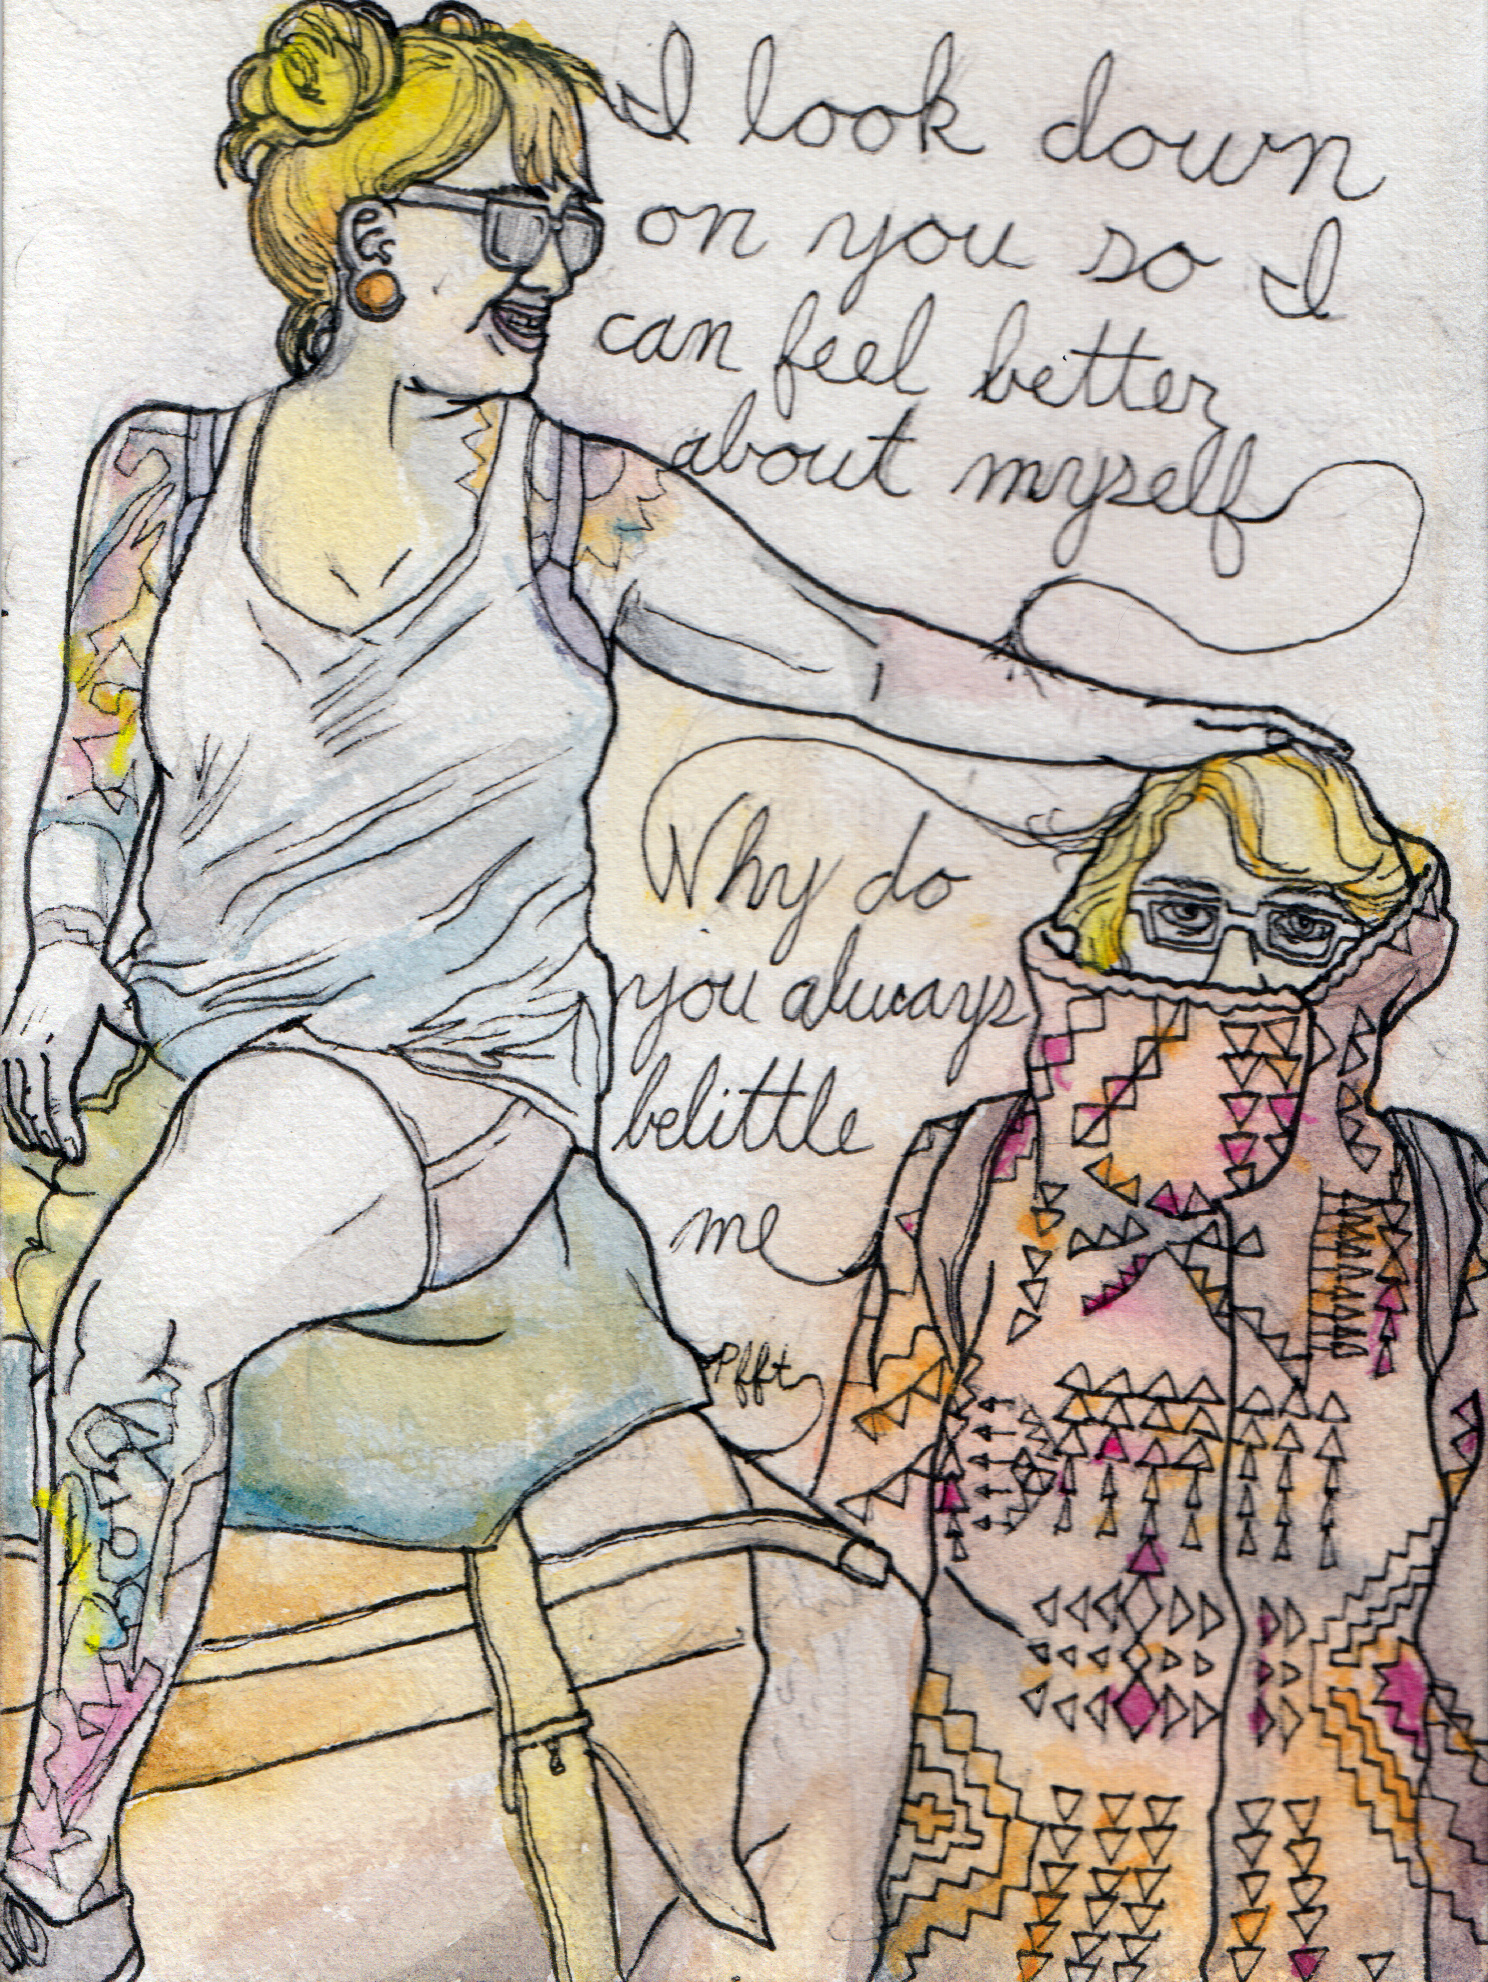 I look down
on you so I
can feel better
about myself
Why do
you always
belittle
me
Pfft